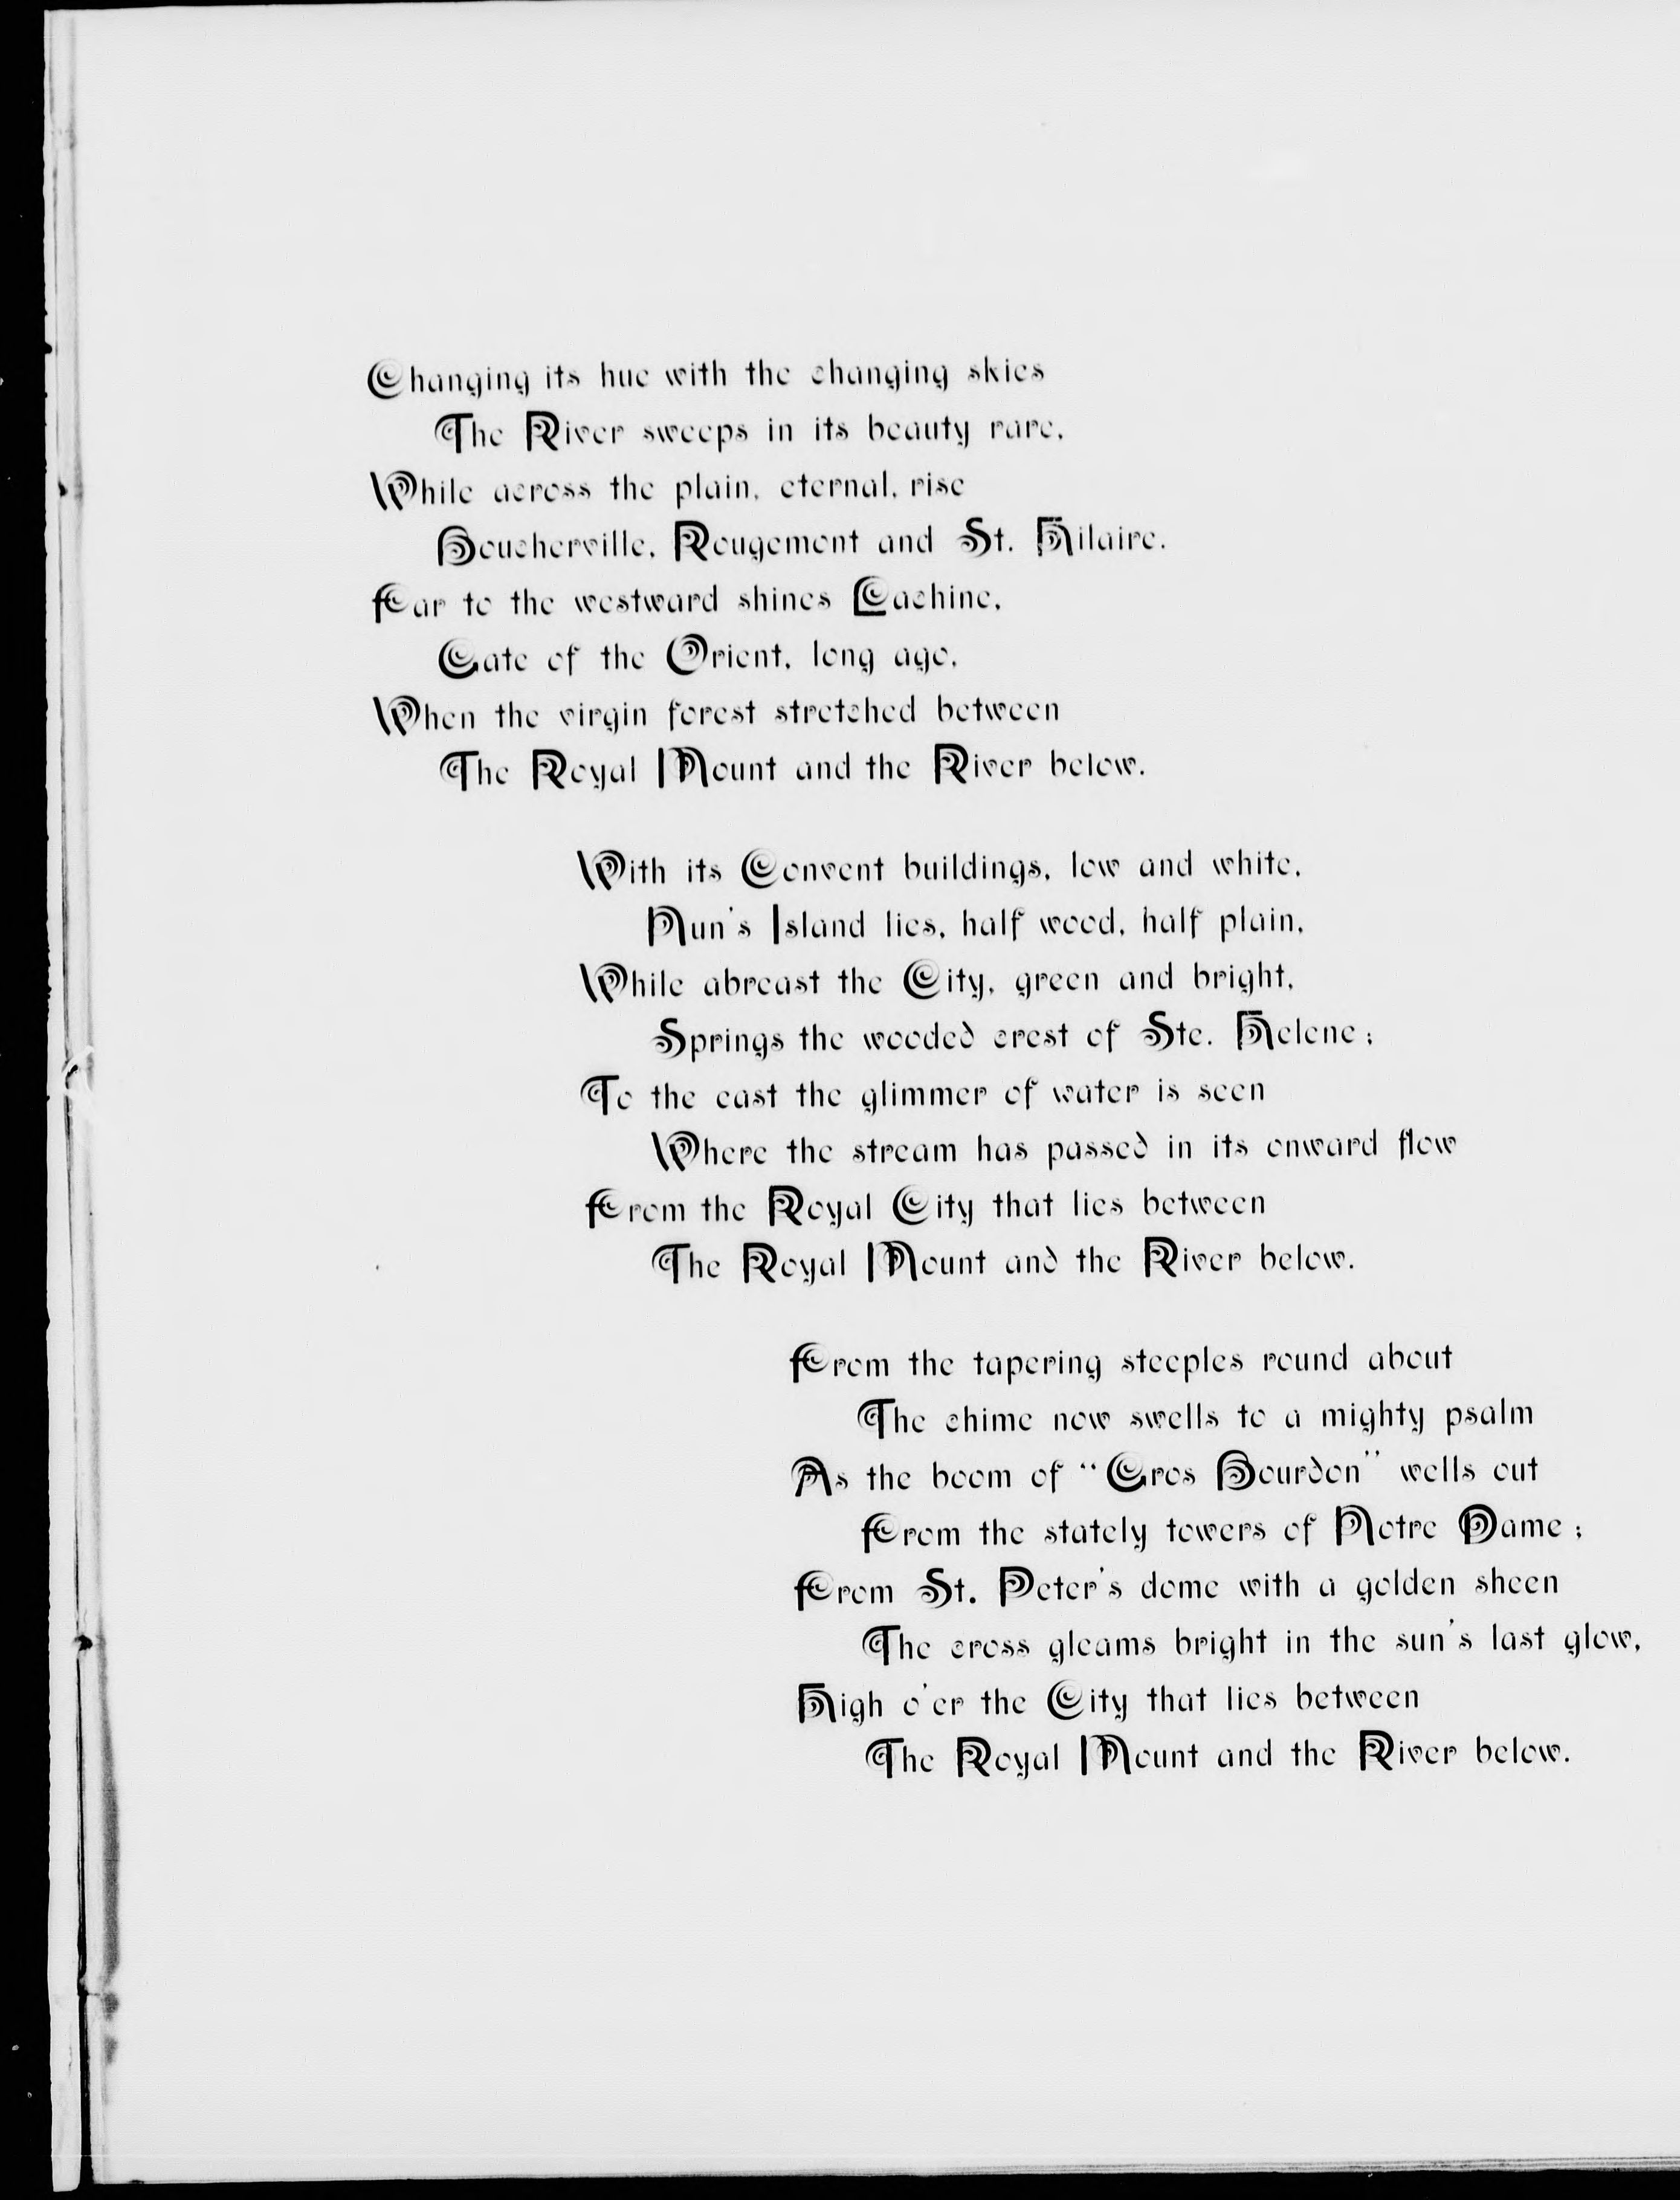 Changing its hue with the changing skies
The River sweeps in its beauty rare,
While across the plain, eternal, rise
Boucherville, Rougemont and St. Hilaire.
Far to the westward shines Lachine,
Gate of the Orient, long ago,
When the virgin forest stretched between
The Royal Mount and the River below.
With its Convent buildings, low and white,
Nun's Island lies, half wood, half plain,
While abreast the City, green and bright,
Springs the wooded crest of Ste. Helene;
To the east the glimmer of water is seen
Where the stream has passed in its onward flow
From the Royal City that lies between
The Royal Mount and the River below.
From the tapering steeples round about
The chime now swells to a mighty psalm
As the boom of "Gros Bourdon" wells out
From the stately towers of Notre Dame;
From St. Peter's dome with a golden sheen
The cross gleams bright in the sun's last glow,
High o'er the City that lies between
The Royal Mount and the River below.